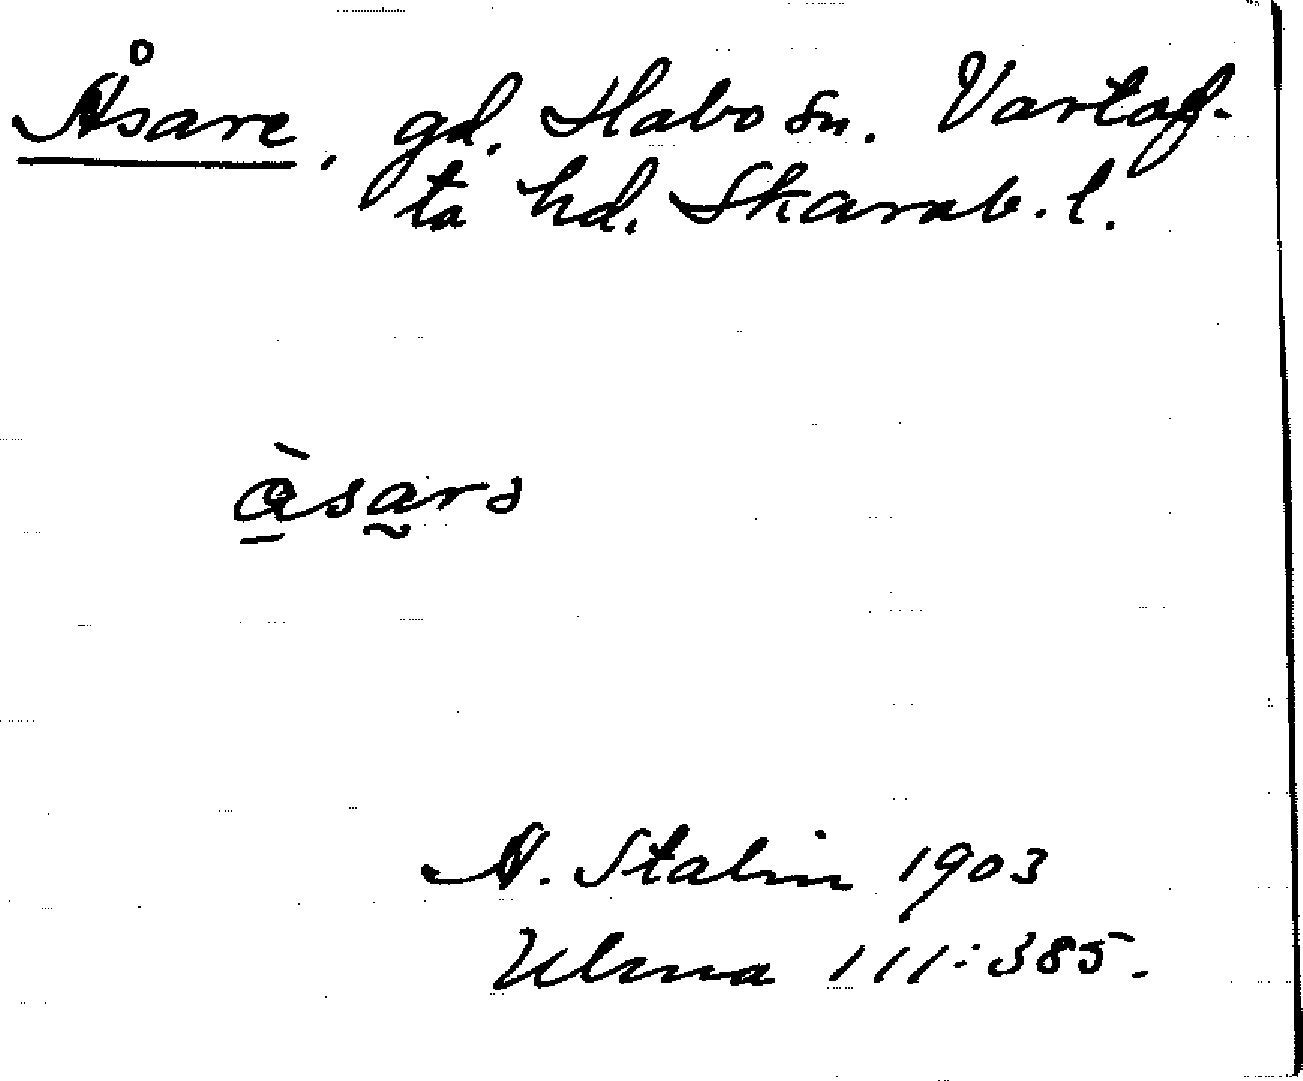 Åsare, gd. Habo sn. Vartof-
ta hd. Skarab. l.
A. Stalin 1903
Ulma 111:385.